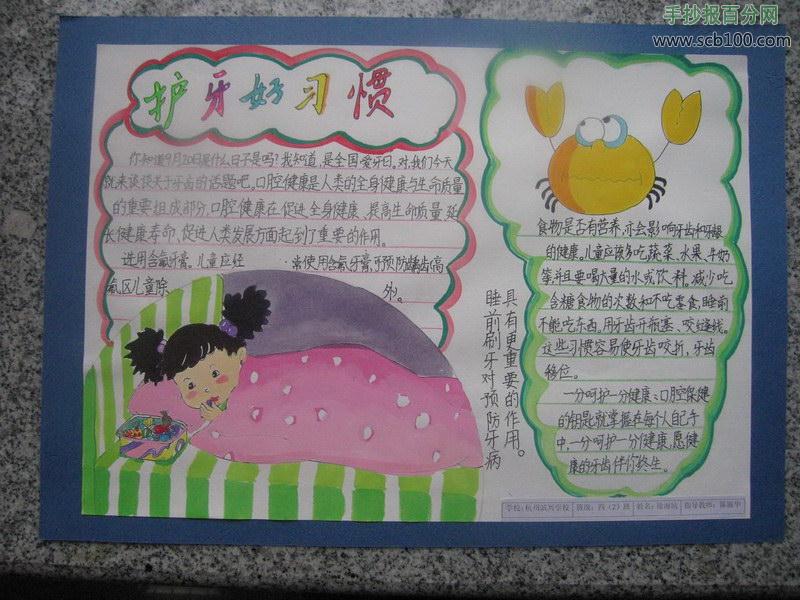 手抄报百分网
www.scb100.com
护牙好习惯
你知道9月20日是什么日不是吗?我知道,是全国爱牙日。对,我们今天
就来谈谈关于牙齿的话题吧。口腔健康是人类的全身健康与生命质量
的重要组成部分,口腔健康在促进全身健康、提高生命质量、延
长健康寿命、促进人类发展方面起到了重要的作用。
选用含氟牙膏。儿童应经常使用含氟牙膏,可预防龋齿(高
氟区儿童除外)。
睡前刷牙对预防牙病
具有更重要的作用。
食物是否有营养,亦会影响牙齿和牙龈
的健康。儿童应该多吃蔬菜、水果、牛奶
等,并且要喝大量的水或饮料,减少吃
含糖食物的次数和不吃零食,睡前
不能吃东西,用牙齿开瓶塞、咬缝线,
这些习惯容易使牙齿咬折,牙齿
移位。
一分呵护一分健康,口腔保健
的钥匙就掌握在每个人自己手
中,一分呵护一分健康,愿健
康的牙齿伴你终生。
学校:杭州滨兴学校 班级:四(2)班 姓名: 指导教师: